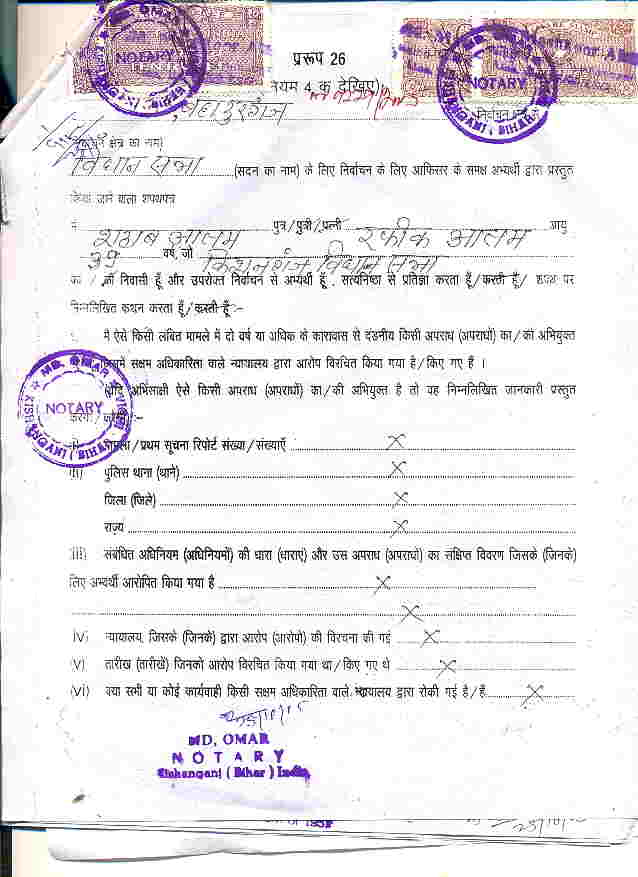 प्ररूप 26
नियम 4 क देखिए)
बहादुरगंज
निर्वाचन
क्षेत्र का नाम)
विधान सभा (सदन का नाम) के लिए निर्वाचन के लिए आफिसर के समक्ष अभ्यर्थी द्वारा प्रस्तुत
किया जाने वाला शपथपत्र
पुत्र/पुत्री/पत्नी रफीक आलम आयु
आलम
39 वर्ष, जो किशनगंज विधान सभा
का / की निवासी हूँ और उपरोक्त निर्वाचन से अभ्यर्थी हूँ , सत्यनिष्ठा से प्रतिज्ञा करता हूँ/करती हूँ/ शपथ पर
निम्नलिखित कथन करता हूँ/करती हूँ :-
मै ऐसे किसी लंबित मामले में दो वर्ष या अधिक के कारावास से दंडनीय किसी अपराध (अपराधों) का/की अभियुक्त
जिसमें सक्षम अधिकारिता वाले न्यायालय द्वारा आरोप विरचित किया गया है/किए गए हैं ।
अभिसाक्षी ऐसे किसी अपराध (अपराधों) का/की अभियुक्त है तो वह निम्नलिखित जानकारी प्रस्तुत
करेगा / करेगी :-
मामला/प्रथम सूचना रिपोर्ट संख्या/संख्याएँ X
(ii) पुलिस थाना (थाने) X
जिला (जिले) X
राज्य X
(iii) संबंधित अधिनियम (अधिनियमों) की धारा (धाराएं) और उस अपराध (अपराधों) का संक्षिप्त विवरण जिसके (जिनके)
लिए अभ्यर्थी आरोपित किया गया है X
X
(iv) न्यायालय, जिसके (जिनके) द्वारा आरोप (आरोपो) की विरचना की गई X
(v) तारीख (तारीखें) जिनको आरोप विरचित किया गया था/किए गए थे X
(vi) क्या सभी या कोई कार्यवाही किसी सक्षम अधिकारिता वाले न्यायालय द्वारा रोकी गई है/हैं X
MD, OMAR
NOTARY
Kishanganj ( Bihar ) India
NOTARY
NOTARY
MD. OMAR
NOTARY
KISHANGANJ ( BIHAR )